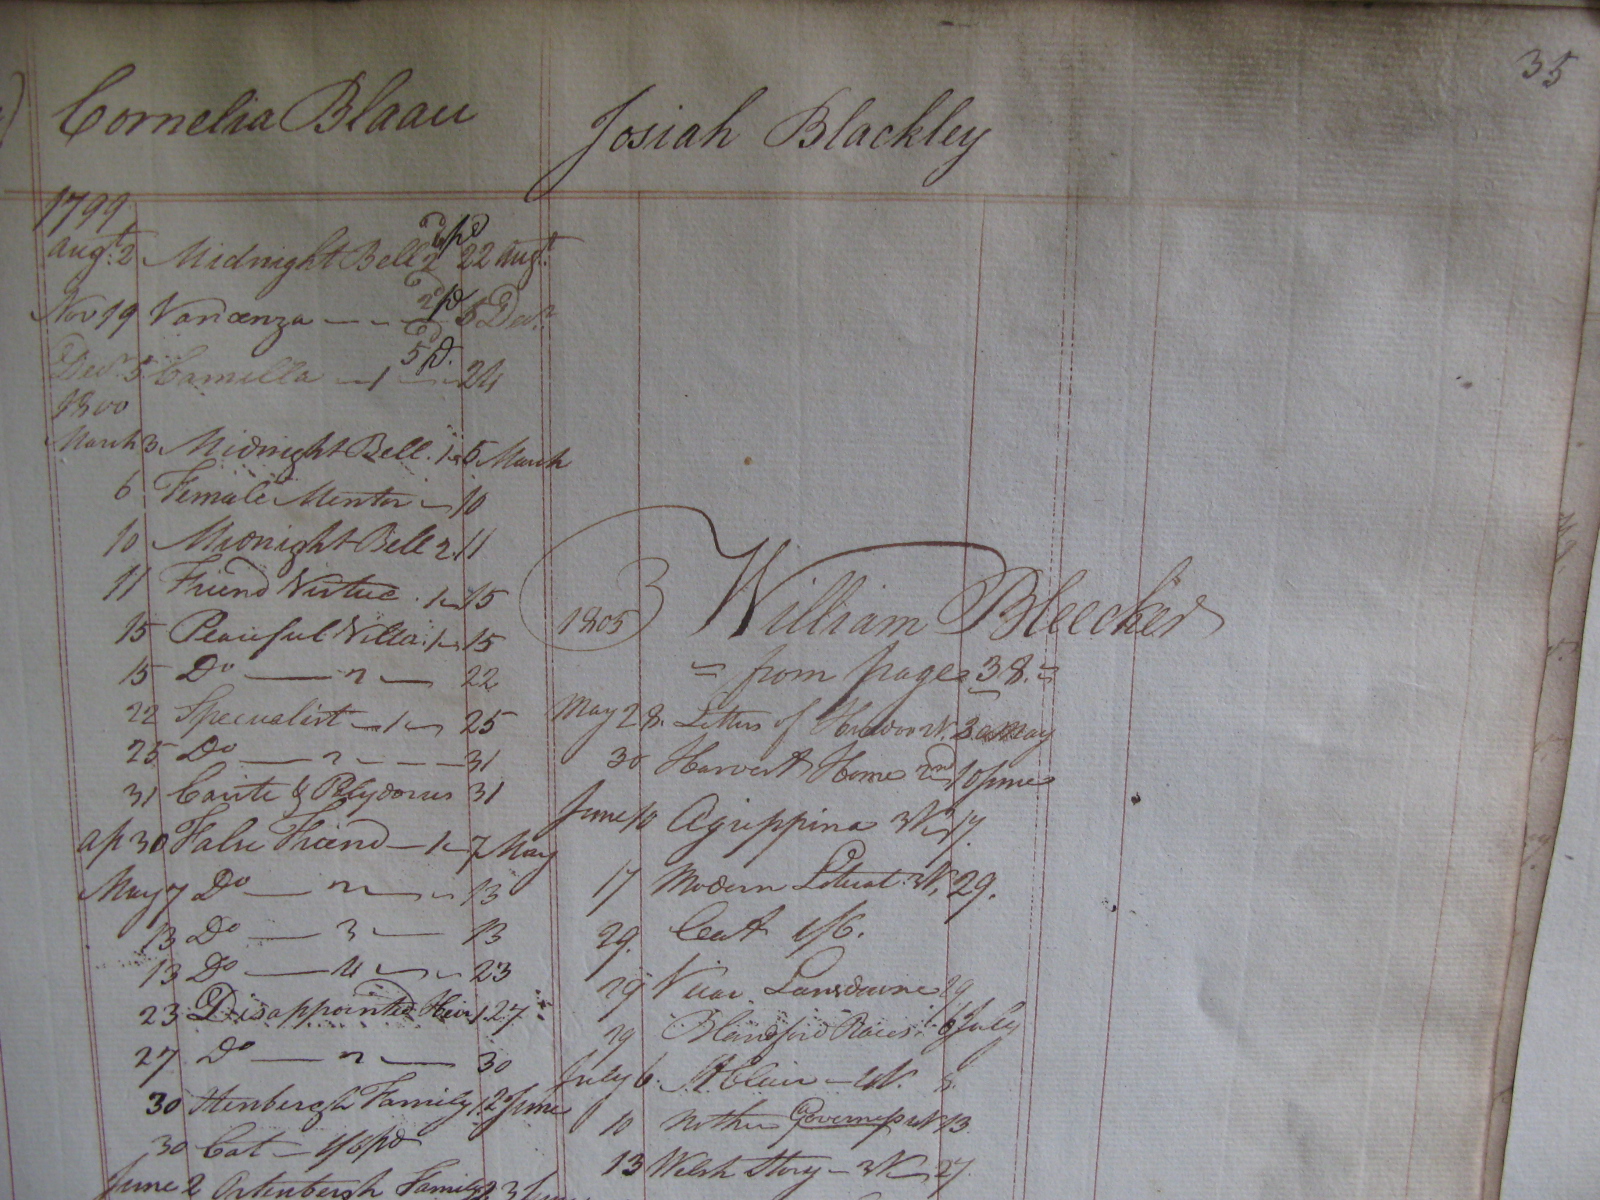 35
Cornelia Blaau
1799
Augt. 2 Midnight Bell 2 22 Augt.
Nov 19 Varianza 5 Decr.
Decr. 5 Camilla 1 24
1800
March 3 Midnight Bell 1 5 March
6 Female Mentor 10
10 Midnight Bell 2 11
11 Friend Virtue 1 15
15 Peaceful Villa 1 15
15 Do 2 22
22 Specualist 1 25
25 Do 2 31
31 & Polydorus 31
Ap 30 False Friend 1 7 May
May 7 Do 2 13
13 Do 3 13
13 Do 4 23
23 Disappointed Heir 1 27
27 Do 2 30
30 Family 1 2 June
30 Cat 1/6 pd
June 2 Ortenbergh Family 2 3 June
Josiah Blackley
1805 William Bleecker
from page 38.
May 28. Letters of 30 May
30 Harvest Home 2nd 10 June
June 10 Agrippina 3V 17.
17 Modern Literat. 3V. 29.
29. Cat 1/6.
29 Lansdowne 29
29 Blandford Races 6 July
July 6. St Clair 8.
10 Governess 13
13 Welsh Story 3V 27.